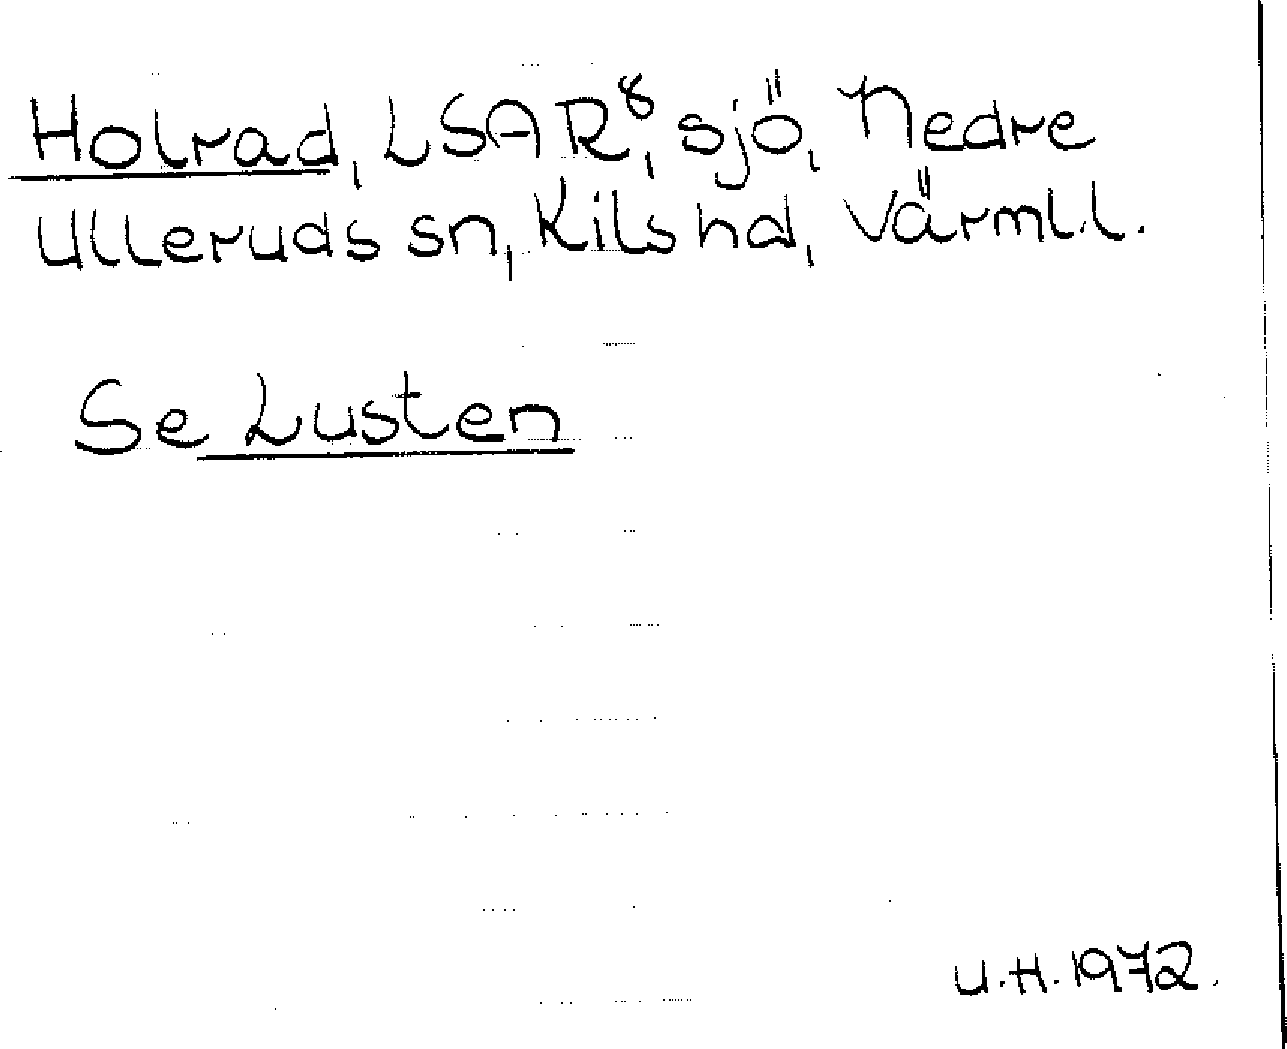 Holrad, LSAR⁸, sjö, Nedre
Ulleruds sn, Kils hd, Värml.l.
Se Lusten
U.H. 1972.